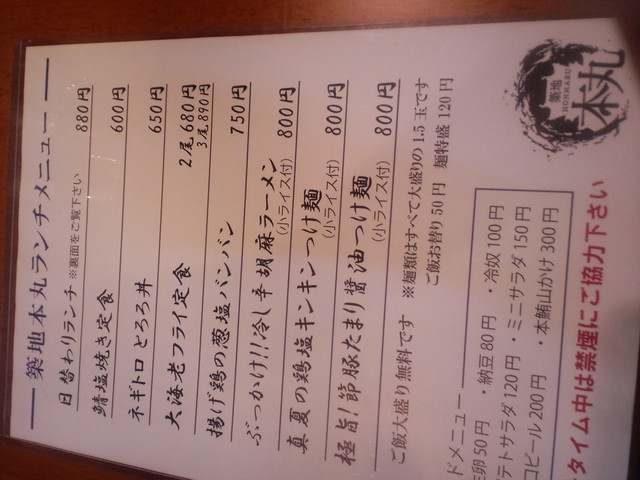 築地本丸ランチメニュー
日替わりランチ ※裏面をご覧下さい 880円
鯖塩焼き定食 600円
ネギトロとろろ丼 650円
大海老フライ定食 2尾680円
3尾890円
揚げ鶏の葱塩バンバン 750円
ぶっかけ!!冷し辛胡麻ラーメン
(小ライス付) 800円
真夏の鶏塩キンキンつけ麺
(小ライス付) 800円
極旨!節豚たまり醤油つけ麺
(小ライス付) 800円
ご飯大盛り無料です ※麺類はすべて大盛りの1.5玉です
ご飯お替り50円 麺特盛120円
ドメニュー
生卵50円 ・納豆80円 ・冷奴100円
テトサラダ120円 ・ミニサラダ150円
コビール200円 ・本鮪山かけ300円
タイム中は禁煙にご協力下さい
築地
HONMARU
本丸